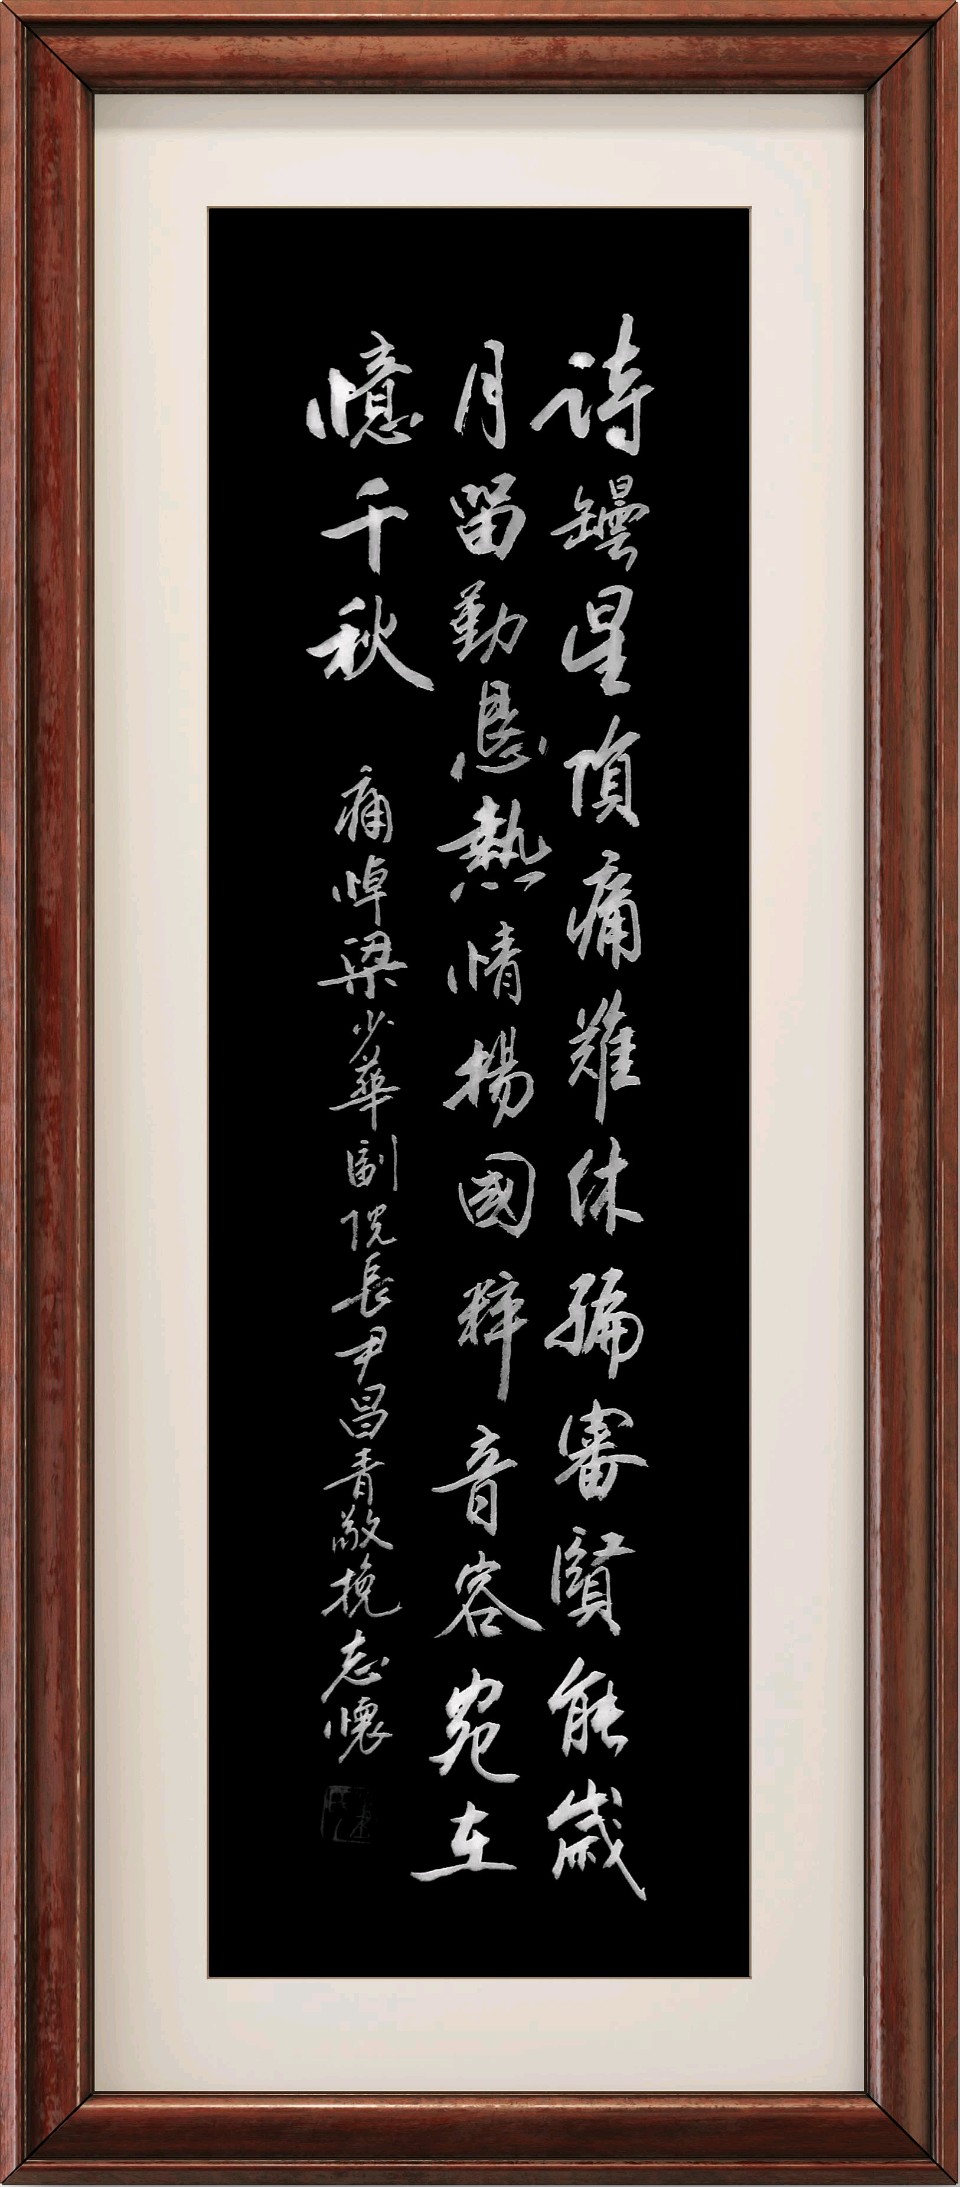 詩罎星隕痛難休編審賢能歲
月留勤恳熱情揚國粹音容宛在
憶千秋
痛悼梁少華副院長尹昌青敬挽志懷